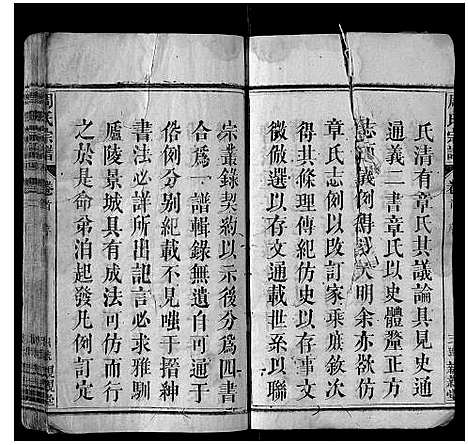 氏清有章氏其議論具見史通
通義二書章氏以史體釐正方
志源義例得以大明余亦欲仿
章氏志例以改訂家乘庶欸次
得其條理傳紀仿史以聯
微倣選以存文通載世系以聯
宗叢錄契約以示後分爲四書
合爲一譜輯錄無遺自可与
俗例分别紀載不見嗤于搢紳
書法必詳所出記言必求雅馴
廬陵景城具有成法可仿而行
之於是命弟洎起發凡例訂定
周氏宗譜
卷首